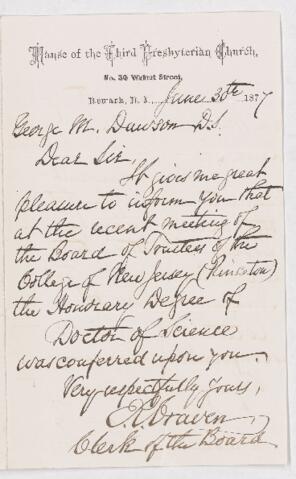 Manse of the Third Presbyterian Church,
No. 39 Walnut Street,
Newark, N. J., June 30th 1877
George M. Dawson D.S.
Dear Sir,
It gives me great
pleasure to inform you that
at the recent meeting of
the Board of Trustees of the
College of New Jersey (Princeton)
the Honorary Degree of
Doctor of Science
was conferred upon you.
Very respectfully Yours,
E. R. Craven,
Clerk of the Board